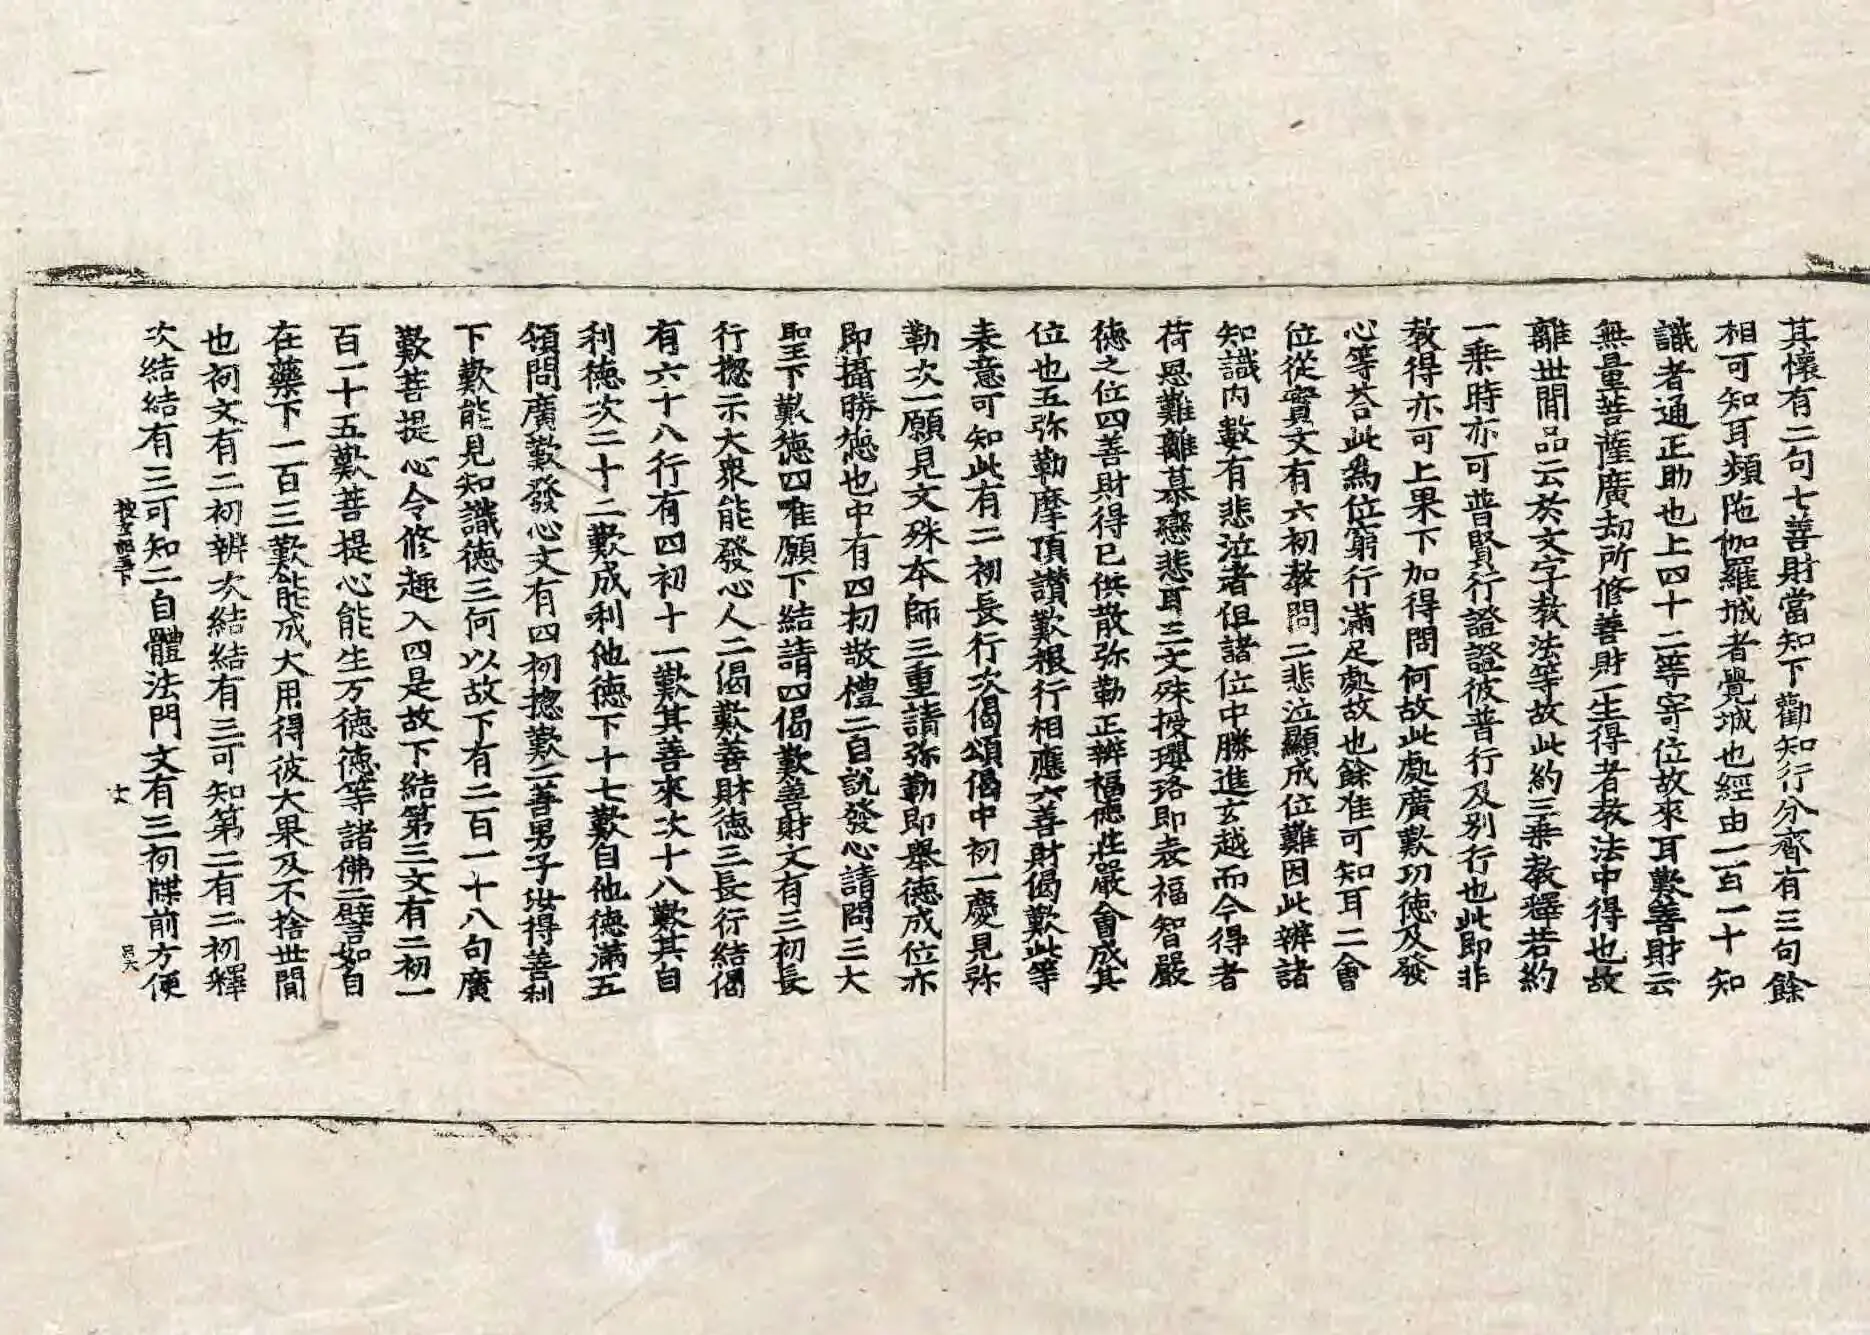 其懷有二句七善財當知下勸知行分齊有三句餘
相可知耳頻陁伽羅城者覺城也經由一百一十知
識者通正助也上四十二等寄位故來耳歎善財云
無量菩薩廣劫所修善財一生得者教法中得也故
離世間品云於文字教法等故此約三乘教釋若約
一乘時亦可普賢行證證彼普行及別行也此即非
教得亦可上果下加得問何故此處廣歎功德及發
心等荅此為位窮行滿足處故也餘准可知耳二會
位從實文有六初教問二悲泣顯成位難因此辨諸
知識內數有悲泣者但諸位中勝進玄越而今得者
荷恩難離慕戀悲耳三文殊授瓔珞即表福智嚴
德之位四善財得已供散弥勒正辨福德莊嚴會成其
位也五弥勒摩頂讚歎根行相應六善財偈歎此等
表意可知此有二初長行次偈頌偈中初一慶見弥
勒次一願見文殊本師三重請弥勒即舉德成位亦
即攝勝德也中有四初敬禮二自說發心請問三大
聖下歎德四唯願下結請四偈歎善財文有三初長
行揔示大衆能發心人二偈歎善財德三長行結偈
有六十八行有四初十一歎其善來次十八歎其自
利德次二十二歎成利他德下十七歎自他德滿五
領問廣歎發心文有四初揔歎二善男子汝得善利
下歎能見知識德三何以故下有二百一十八句廣
歎菩提心令修趣入四是故下結第三文有二初一
百一十五歎菩提心能生万德德等諸佛二譬如自
在藥下一百三歎能成大用得彼大果及不捨世間
也初文有二初辨次結結有三可知第二有二初釋
次結結有三可知二自體法門文有三初牒前方便
搜玄記五下